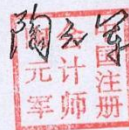 陶元军
中国注册
会计师
陶元军